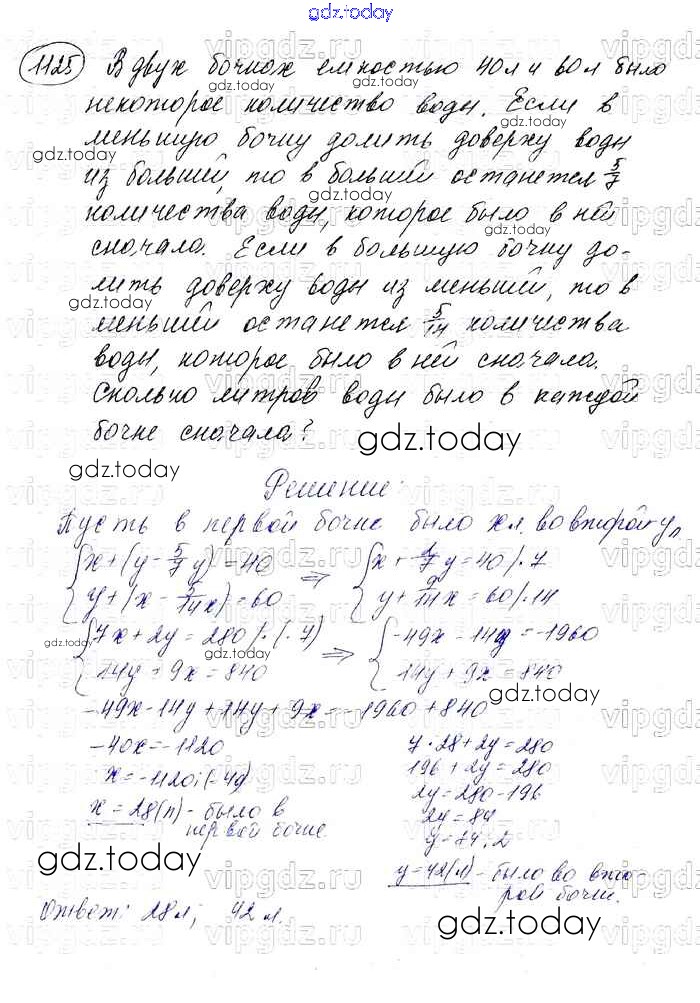 gdz.today
1125 В двух бочках емкостью 40 л и 60 л было
некоторое количество воды. Если в
меньшую бочку долить доверху воды
gdz.today
из большей, то в большей останется 5/7
gdz.today
количества воды, которое было в ней
gdz.today
сначала. Если в большую бочку до-
лить доверху воды из меньшей, то в
gdz.today
меньшей останется 5/14 количества
воды, которое было в ней сначала.
gdz.today
Сколько литров воды было в каждой
бочке сначала?
gdz.today
gdz.today
Решение:
Пусть в первой бочке было x л. во второй - y л
{x + (y - 5/7 y) = 40 => {x + 2/7 y = 40 /·7
{y + (x - 5/14 x) = 60 {y + 9/14 x = 60 /·14
{7x + 2y = 280 /·(-7) => {-49x - 14y = -1960
gdz.today
{14y + 9x = 840 {14y + 9x = 840
gdz.today
gdz.today
-49x - 14y + 14y + 9x = -1960 + 840
-40x = -1120
x = -1120 : (-40)
x = 28 (л) - было в
первой бочке
7 · 28 + 2y = 280
196 + 2y = 280
2y = 280 - 196
2y = 84
y = 84 : 2
gdz.today
y = 42 (л) - было во вто-
рой бочке.
Ответ: 28 л; 42 л.
gdz.today